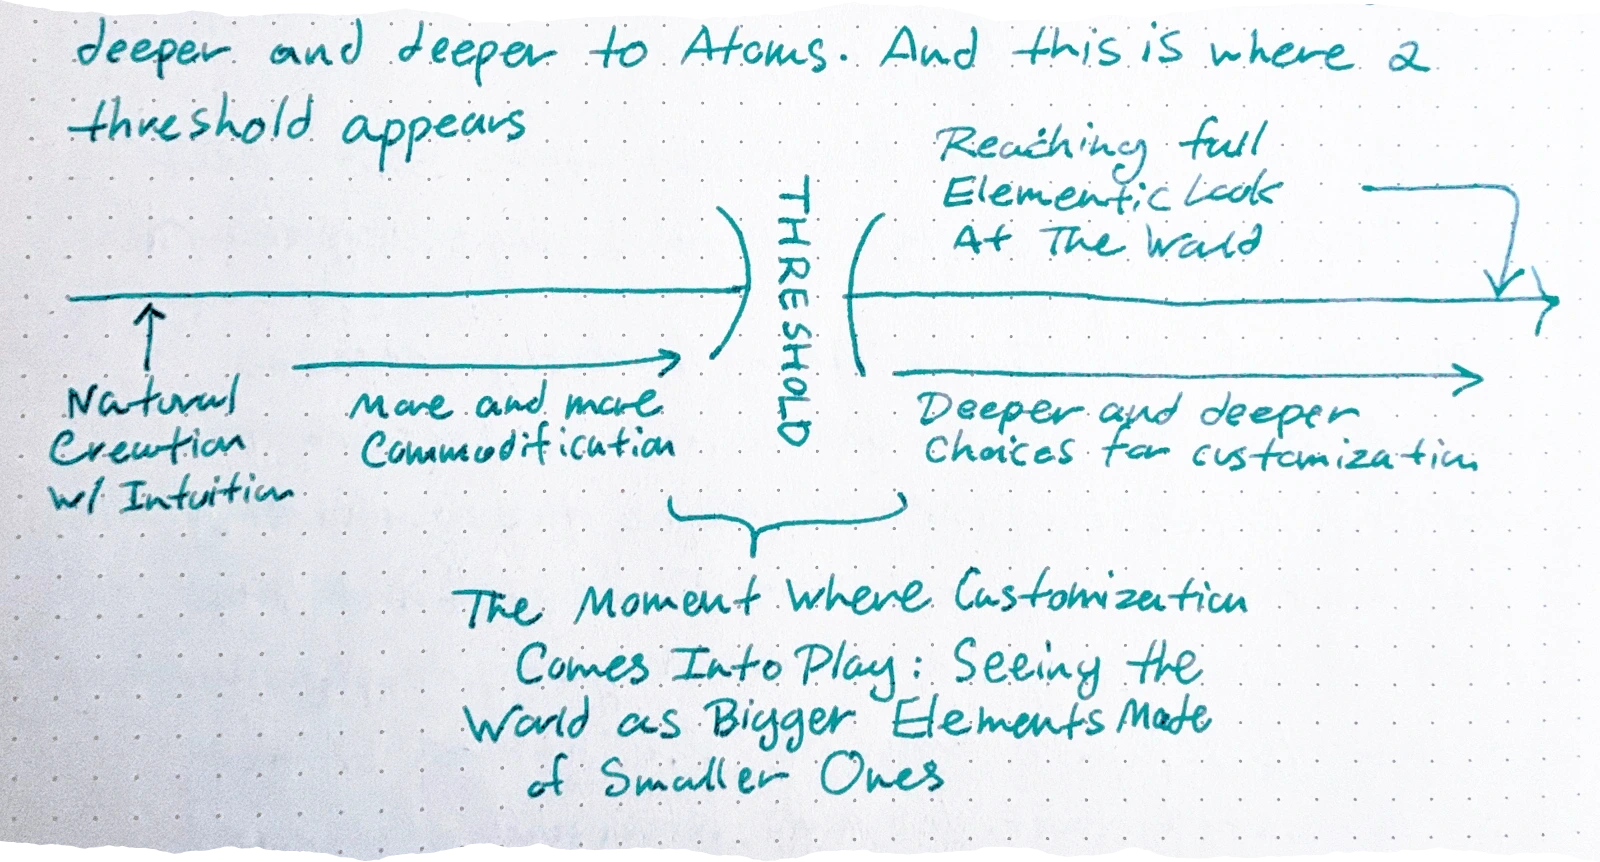 deeper and deeper to Atoms. And this is where a
threshold appears
Reaching full
Elementic Look
At The World
THRESHOLD
Natural
Creation
w/ Intuition
More and more
Commodification
Deeper and deeper
Choices for customization
The Moment Where Customization
Comes Into Play: Seeing the
World as Bigger Elements Made
of Smaller Ones